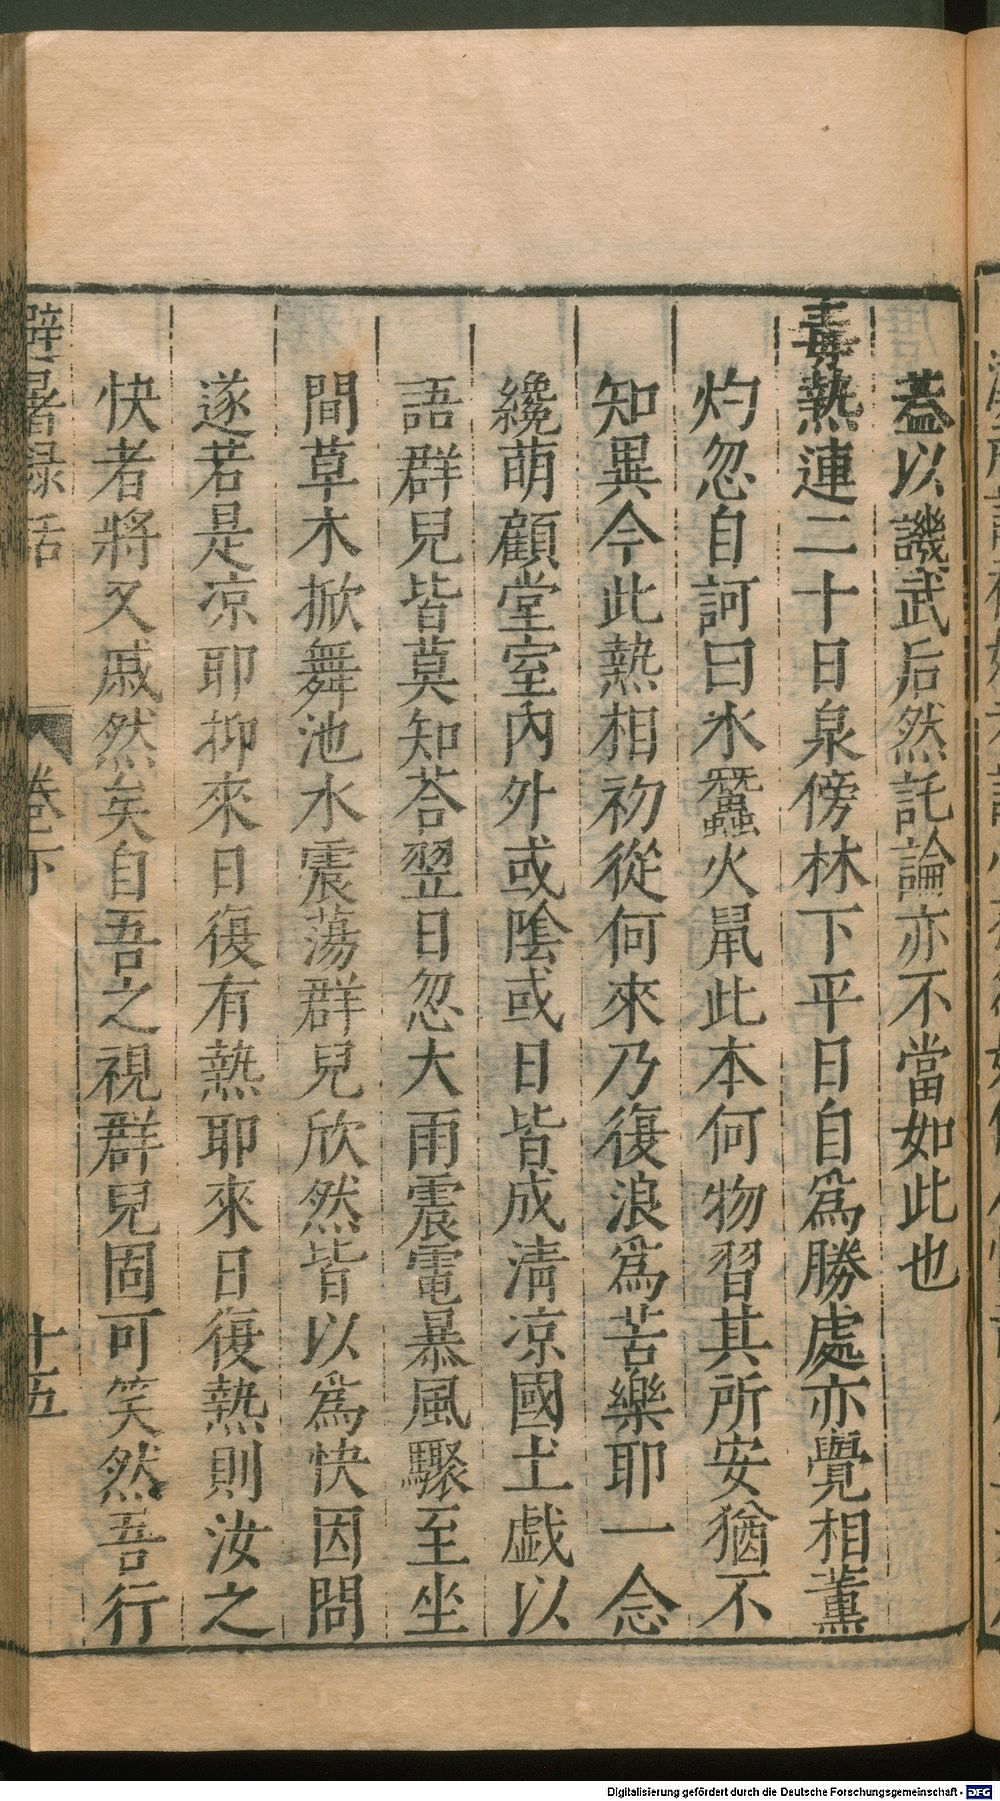 蓋以譏武后然託論亦不當如此也
毒熱連二十日泉傍林下平日自爲勝處亦覺相薰
灼忽自訶曰氷蠶火鼠此本何物習其所安猶不
知異今此熱相初從何來乃復浪爲苦樂耶一念
纔萌顧堂室內外或陰或日皆成淸凉國土戱以
語群兒皆莫知荅翌日忽大雨震電暴風驟至坐
間草木掀舞池水震蕩群兒欣然皆以爲快因問
遂若是凉耶抑來日復有熱耶來日復熱則汝之
快者將又戚然矣自吾之視群兒固可笑然吾行
避暑録話 卷下 十五
Digitalisierung gefördert durch die Deutsche Forschungsgemeinschaft - DFG